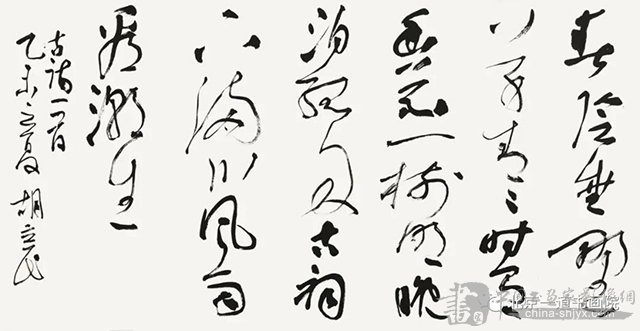 春陰垂野
草青々时有
幽花一树明晚
泊孤舟古祠
下满川風雨
看潮生
古诗一首
乙未立夏 胡立民
書
china-shjyx.com